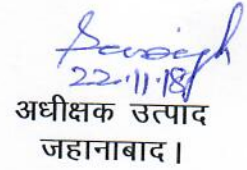 22.11.18
अधीक्षक उत्पाद
जहानाबाद।